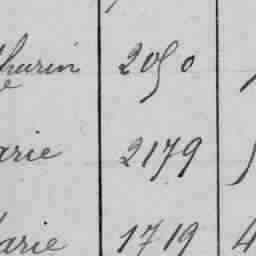 thurin 2050
arie 2179
arie 1719 4